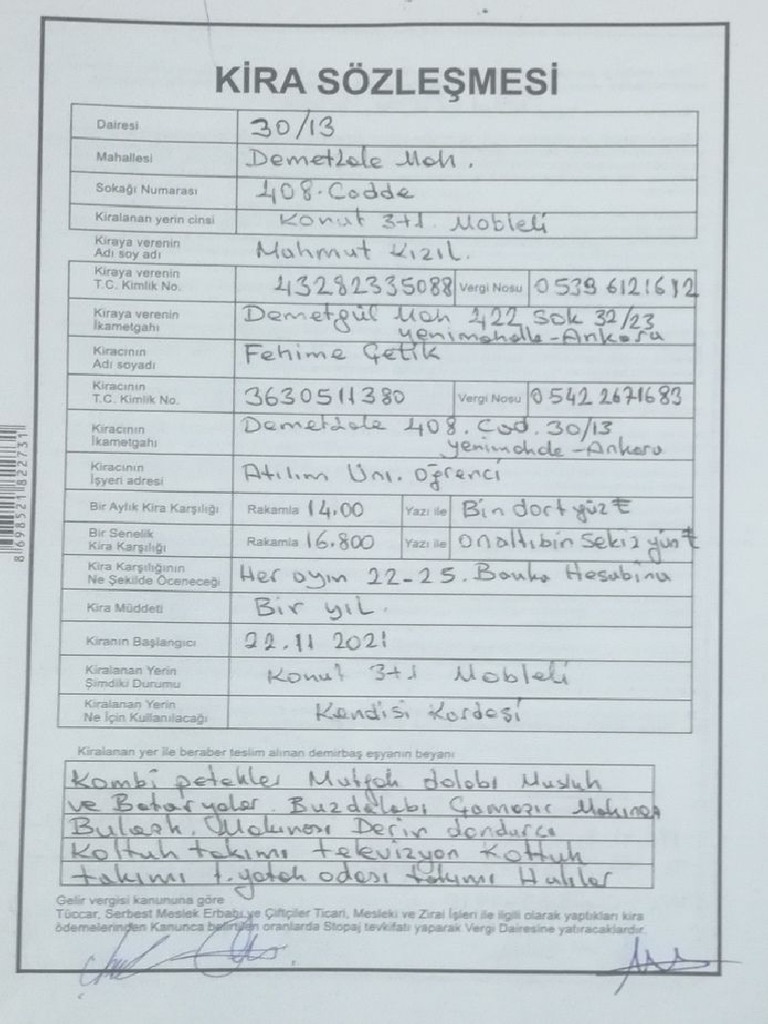 KİRA SÖZLEŞMESİ
Dairesi 30/13
Mahallesi Demetlale Mah.
Sokağı Numarası 408. Cadde
Kiralanan yerin cinsi Konut 3+1. Mobleli
Kiraya verenin
Adı soy adı Mahmut Kızıl.
Kiraya verenin
T.C. Kimlik No. 43282335088 Vergi Nosu 0539 6121612
Kiraya verenin
İkametgahı Demetgül Mah 422 Sok 32/23
yenimahalle-Ankara
Kiracının
Adı soyadı Fehime Çetik
Kiracının
T.C. Kimlik No. 3630511380 Vergi Nosu 0542 2671683
Kiracının
İkametgahı Demetlale 408. Cad. 30/13
yenimahde-Ankara
Kiracının
İşyeri adresi Atılım Üni. Öğrenci
Bir Aylık Kira Karşılığı Rakamla 14.00 Yazı ile Bin dört yüz ₺
Bir Senelik
Kira Karşılığı Rakamla 16.800 Yazı ile onaltıbin sekiz yüz ₺
Kira Karşılığının
Ne Şekilde Öceneceği Her ayın 22-25. Banka Hesabına
Kira Müddeti Bir yıl.
Kiranın Başlangıcı 22.11 2021
Kiralanan Yerin
Şimdiki Durumu Konut 3+1 Mobleli
Kiralanan Yerin
Ne İçin Kullanılacağı Kendisi Kardeşi
Kiralanan yer ile beraber teslim alınan demirbaş eşyanın beyanı
Kombi petekler Mutfak dolabı Musluk
ve Bataryalar. Buzdolabı Çamaşır Makinası
Bulaşık. Makinası Derin dondurcu
Koltuk takımı televizyon Koltuk
takımı t.yatak odası takımı Halılar
Gelir vergisi kanununa göre
Tüccar, Serbest Meslek Erbabı ve Çiftçiler Ticari, Mesleki ve Zirai İşleri ile ilgili olarak yaptıkları kira
ödemelerinden Kanunca belirtilen oranlarda Stopaj tevkifatı yaparak Vergi Dairesine yatıracaklardır.
8698521822731